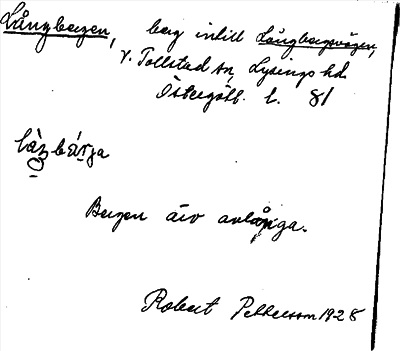 Långbergen, berg intill Långbergsvägen,
V. Tollstad sn, Lysings hd.
Östergötl. l. 81
Bergen äro avlånga.
Robert Pettersson 1928